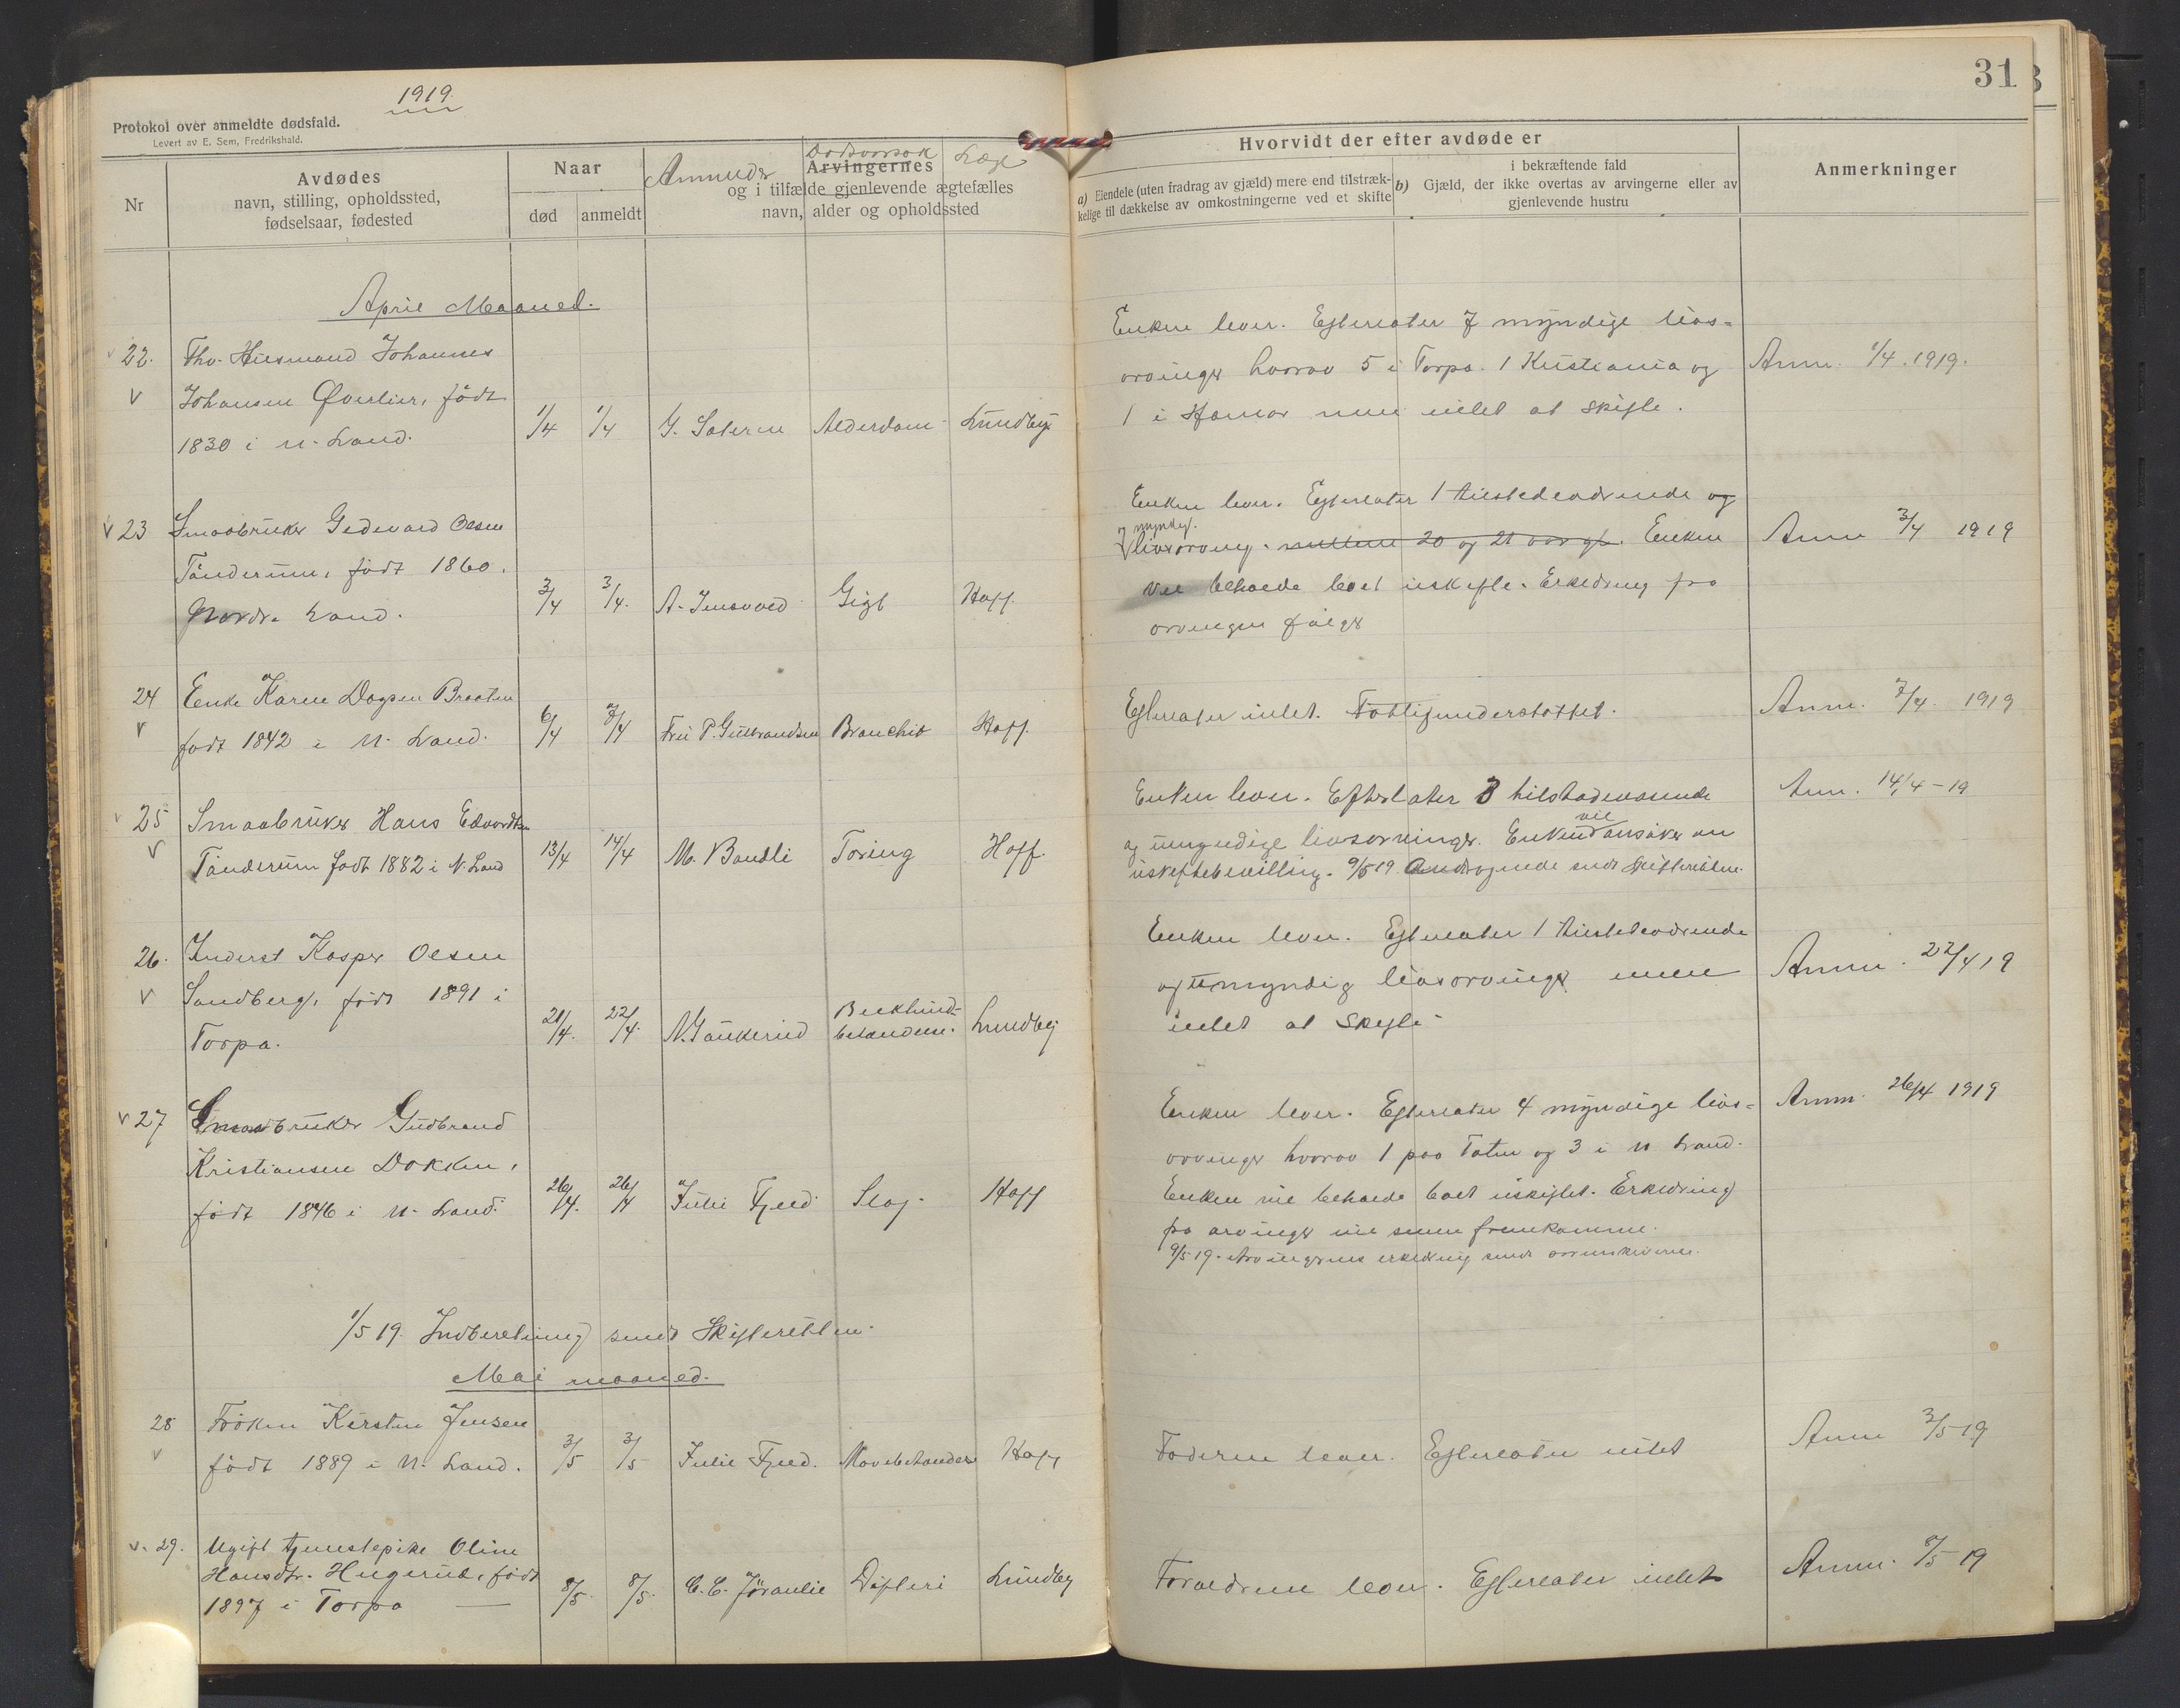 1919.
Protokol over anmeldte dødsfald.
Levert av E. Sem, Fredrikshald.
31
Nr
Avdødes
navn, stilling, opholdssted,
fødselsaar, fødested
Naar
død
anmeldt
Anmelder
Dødsaarsak
Læge
Arvingernes
og i tilfælde gjenlevende ægtefælles
navn, alder og opholdssted
Hvorvidt der efter avdøde er
a) Eiendele (uten fradrag av gjæld) mere end tilstræk-
kelige til dækkelse av omkostningerne ved et skifte
i bekræftende fald
b) Gjæld, der ikke overtas av arvingerne eller av
gjenlevende hustru
Anmerkninger
April Maaned.
22. Fhv. Husmand Johannes
Johansen Øverlier, født
1830 i N. Land.
1/4 1/4 G. Sateren Alderdom Lundby
Enken lever. Efterlater 7 myndige livs-
arvinger hvorav 5 i Torpa. 1 Kristiania og
1 i Hamar men intet at skifte.
Anm. 1/4. 1919.
23 Smaabruker Gedevard Olsen
Tønderum, født 1860.
Nordre Land.
3/4 3/4. A. Jensvold Gigt Hoff.
Enken lever. Efterlater 1 tilstedeværende og
og myndig.
livsarving. mellem 20 og 21 aar gl. Enken
vil beholde boet uskifte. Erklæring fra
arvingen følger
Anm 3/4 1919
24 Enke Karen Dagsen Braaten
født 1842 i N. Land.
6/4 7/4 Fru P. Gulbrandsen Bronchit Hoff.
Efterlater intet. Fattigunderstøttet.
Anm. 7/4. 1919
25 Smaabruker Hans Edvardsen
Tønderum født 1882 i N. Land
13/4 14/4 M. Baudli Tæring Hoff.
Enken lever. Efterlater 3 tilstedeværende
og umyndige livsarvinger. Enken vil ansøke om
uskiftebevilling. 9/5 19 Andragende sendt Skifteretten.
Anm. 14/4-19
26. Inderst Kasper Olsen
Sandberg, født 1891 i
Torpa.
21/4. 22/4. Lundby
Enken lever. Efterlater 1 tilstedeværende
og umyndig livsarvinger men
intet at skifte
Anm. 22/4 19
27 Smaabruker Gudbrand
Kristiansen Dokken,
født 1846 i N. Land.
26/4. 26/4 Julie Fjeld Slag. Hoff
Enken lever. Efterlater 4 myndige livs-
arvinger hvorav 1 paa Toten og 3 i N Land.
Enken vil beholde boet uskiftet. Erklæring
fra arvinger vil senere fremkomme.
9/5 19. Arvingernes erklæring sendt sorenskriveren.
Anm. 26/4 1919
1/5 19. Indberetning sendt Skifteretten.
Mai maaned.
28 Frøken Kirsten Jensen
født 1889 i N. Land.
3/5 3/5 Julie Fjeld. Hoff
Faderen lever. Efterlater intet
Anm 3/5 19
29. Ugift tjenestepike Oline
Hansdtr. Hugerud, født
1897 i Torpa
8/5. 8/5. Difteri Lundby
Forældrene lever. Efterlater intet
Anm. 8/5 19